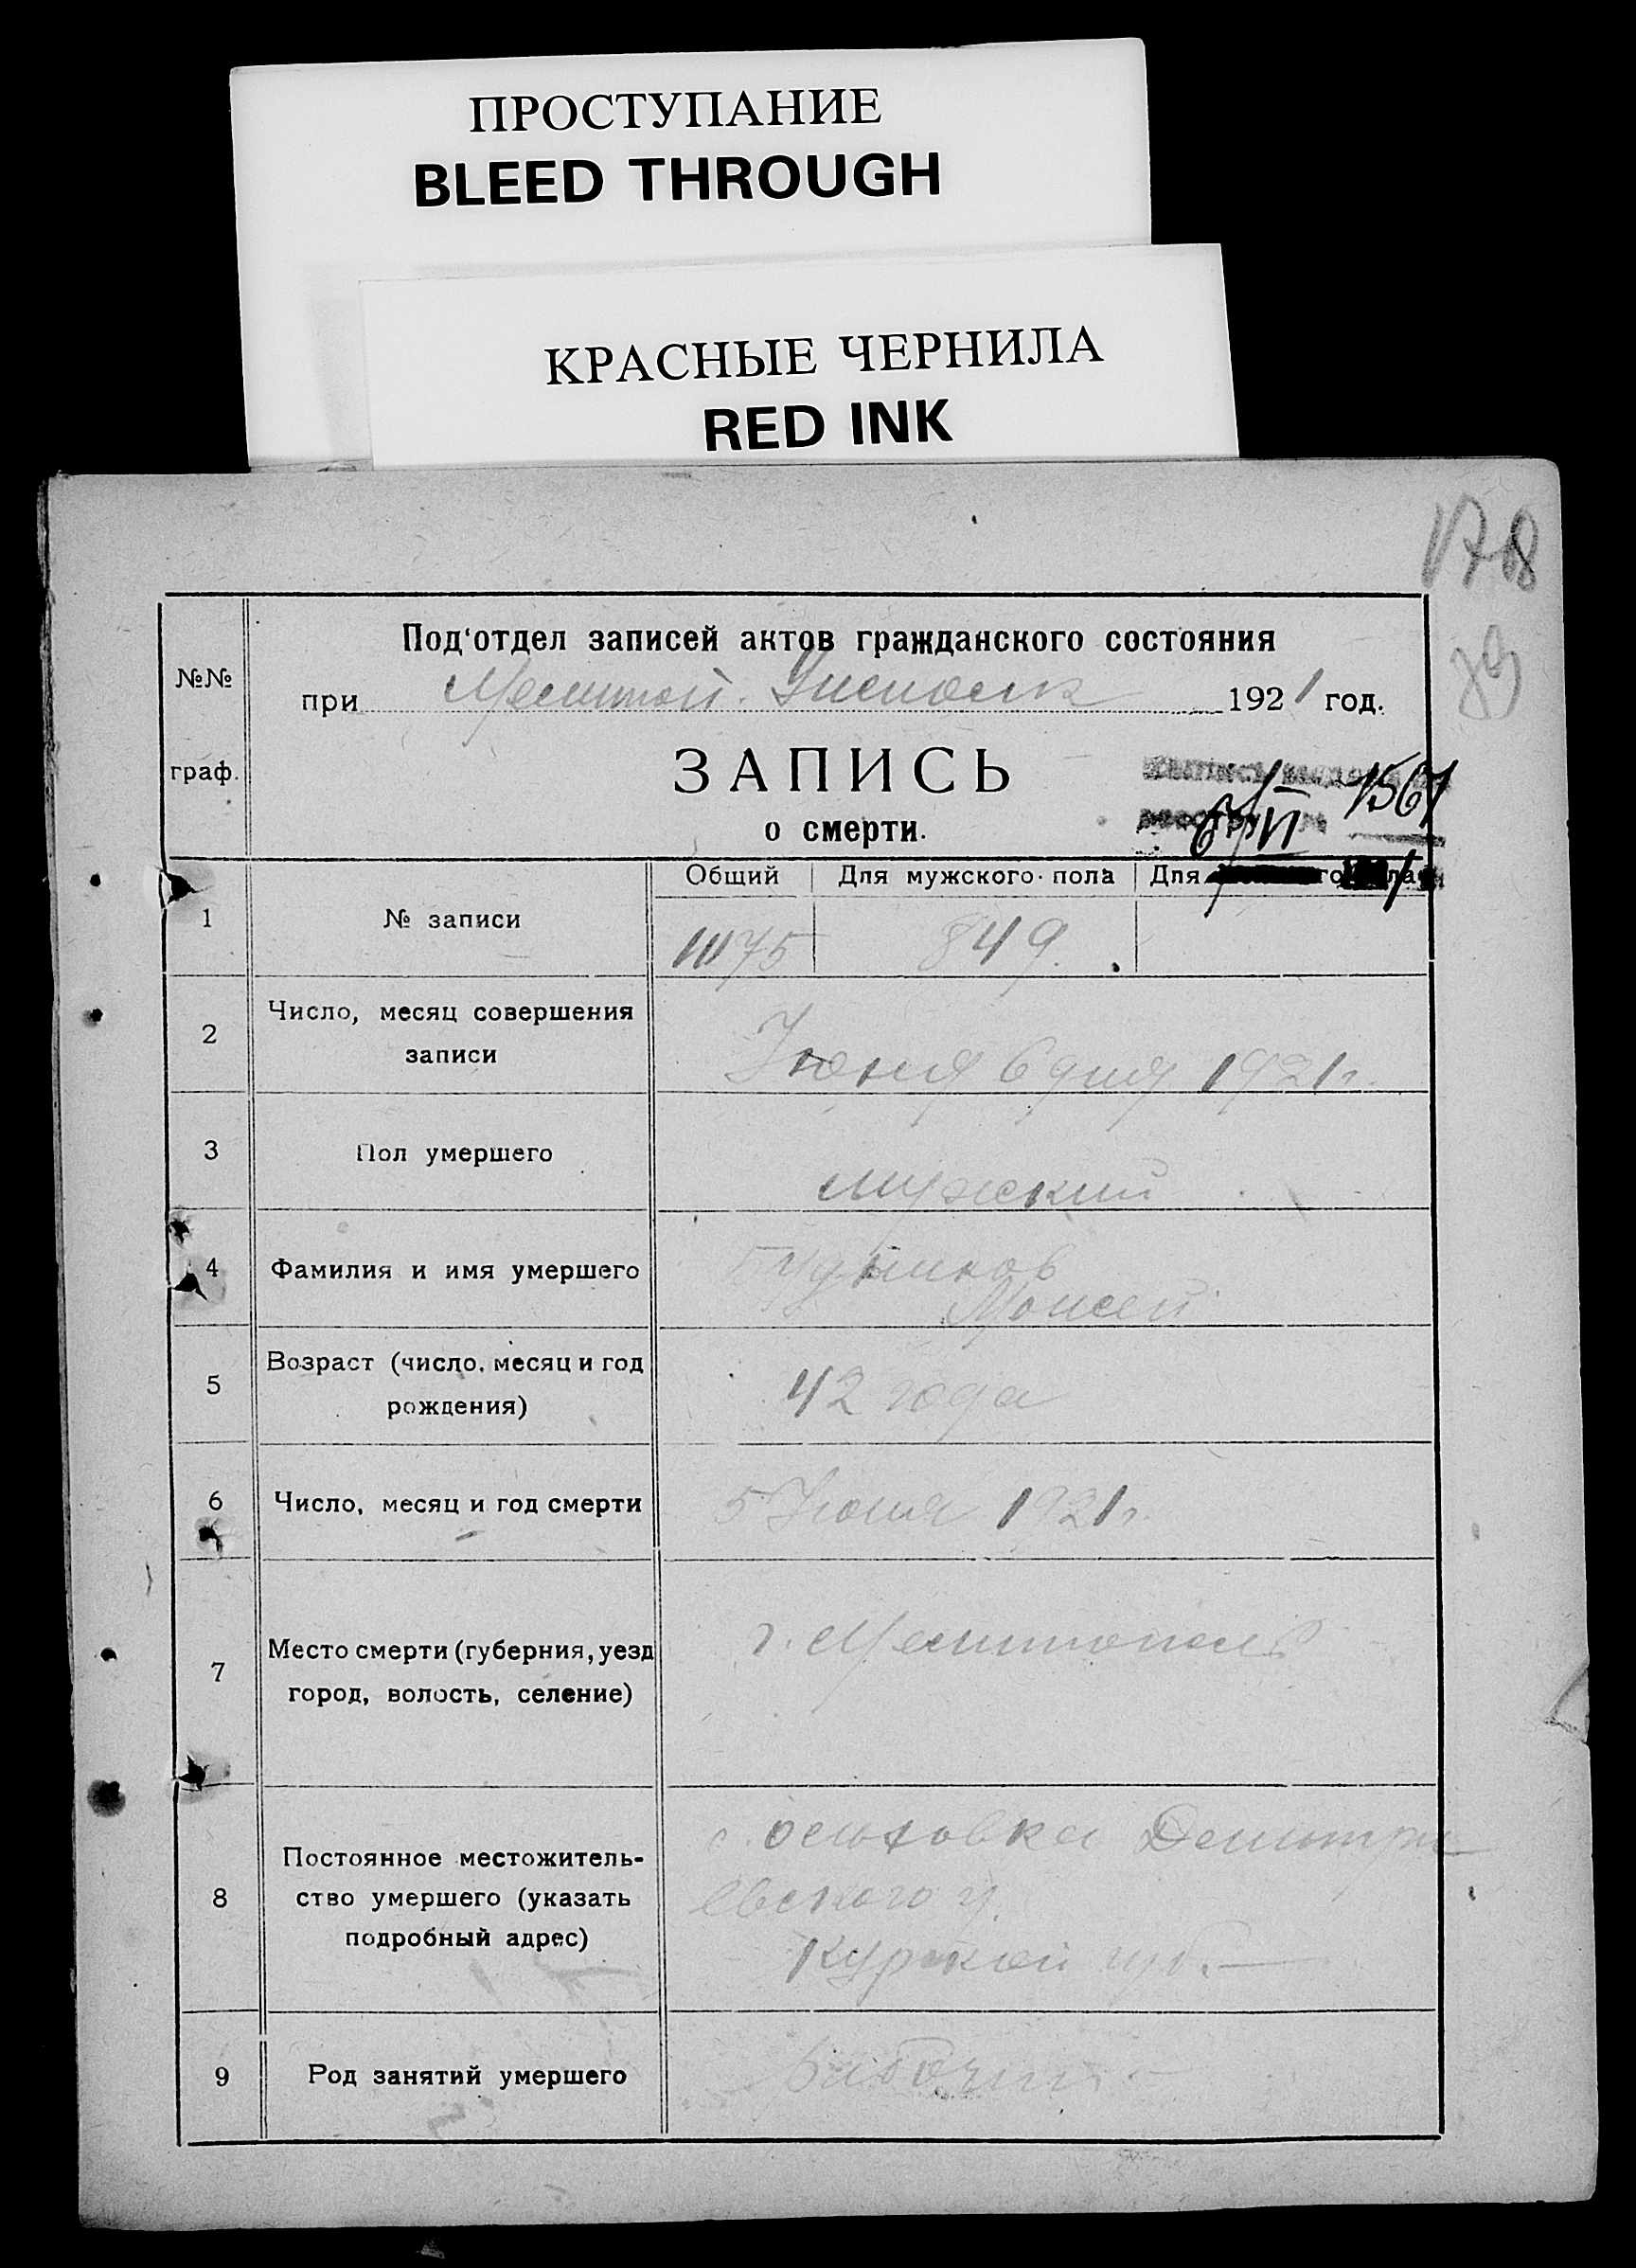 ПРОСТУПАНИЕ
BLEED THROUGH
КРАСНЫЕ ЧЕРНИЛА
RED INK
178
89
№№
граф.
Под'отдел записей актов гражданского состояния
при Мелитоп. 1921 год.
ЗАПИСЬ
о смерти.
1567
6/VI
Общий Для мужского пола Для
1 № записи 1175 849.
2 Число, месяц совершения
записи
Июня 6 дня 1921 г.
3 Пол умершего мужский
4 Фамилия и имя умершего
Моисей
5 Возраст (число, месяц и год
рождения)
42 года
6 Число, месяц и год смерти 5 Июня 1921 г.
7 Место смерти (губерния, уезд
город, волость, селение)
г. Мелитополь
8 Постоянное местожитель-
ство умершего (указать
подробный адрес)
с. Дмитри
евского у.
Курской губ.
9 Род занятий умершего рабочий